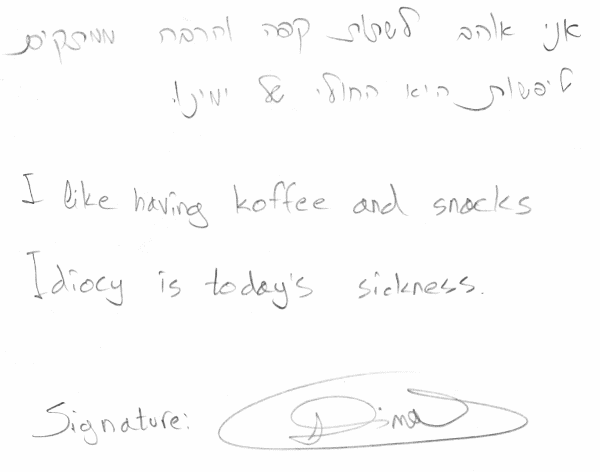 אני אוהב לשתות קפה והרבה ממתקים
טיפשות היא החולי של ימינו.
I like having koffee and snacks
Idiocy is today's sickness.
Signature: Dima